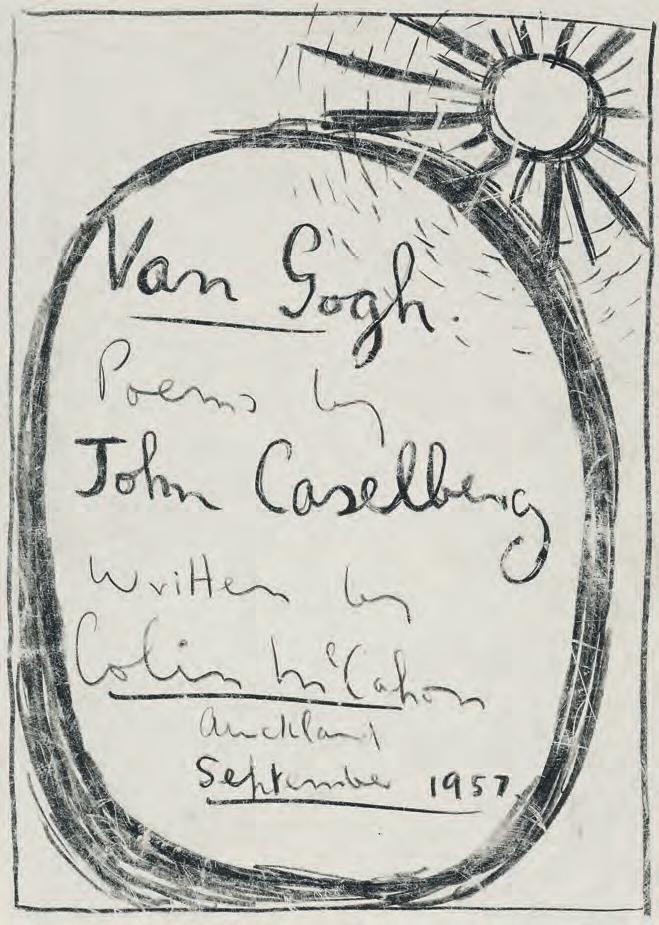 Van Gogh.
Poems by
John Caselberg
Written by
Colin McCahon
Auckland
September 1957.